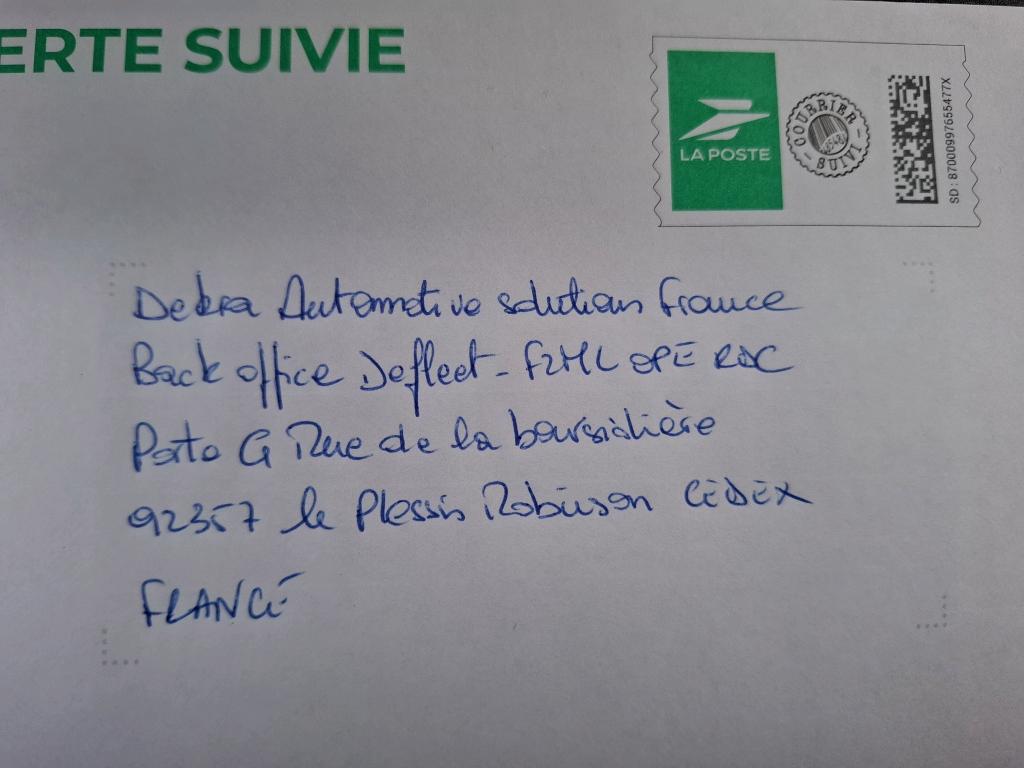 ERTE SUIVIE
LA POSTE
COURRIER SUIVI
SD : 87000997655477X
Dekra Automotive solutions France
Back office Defleet - F2ML OPE RDC
Porte G Rue de la boursidière
92357 le Plessis Robinson CEDEX
FRANCE